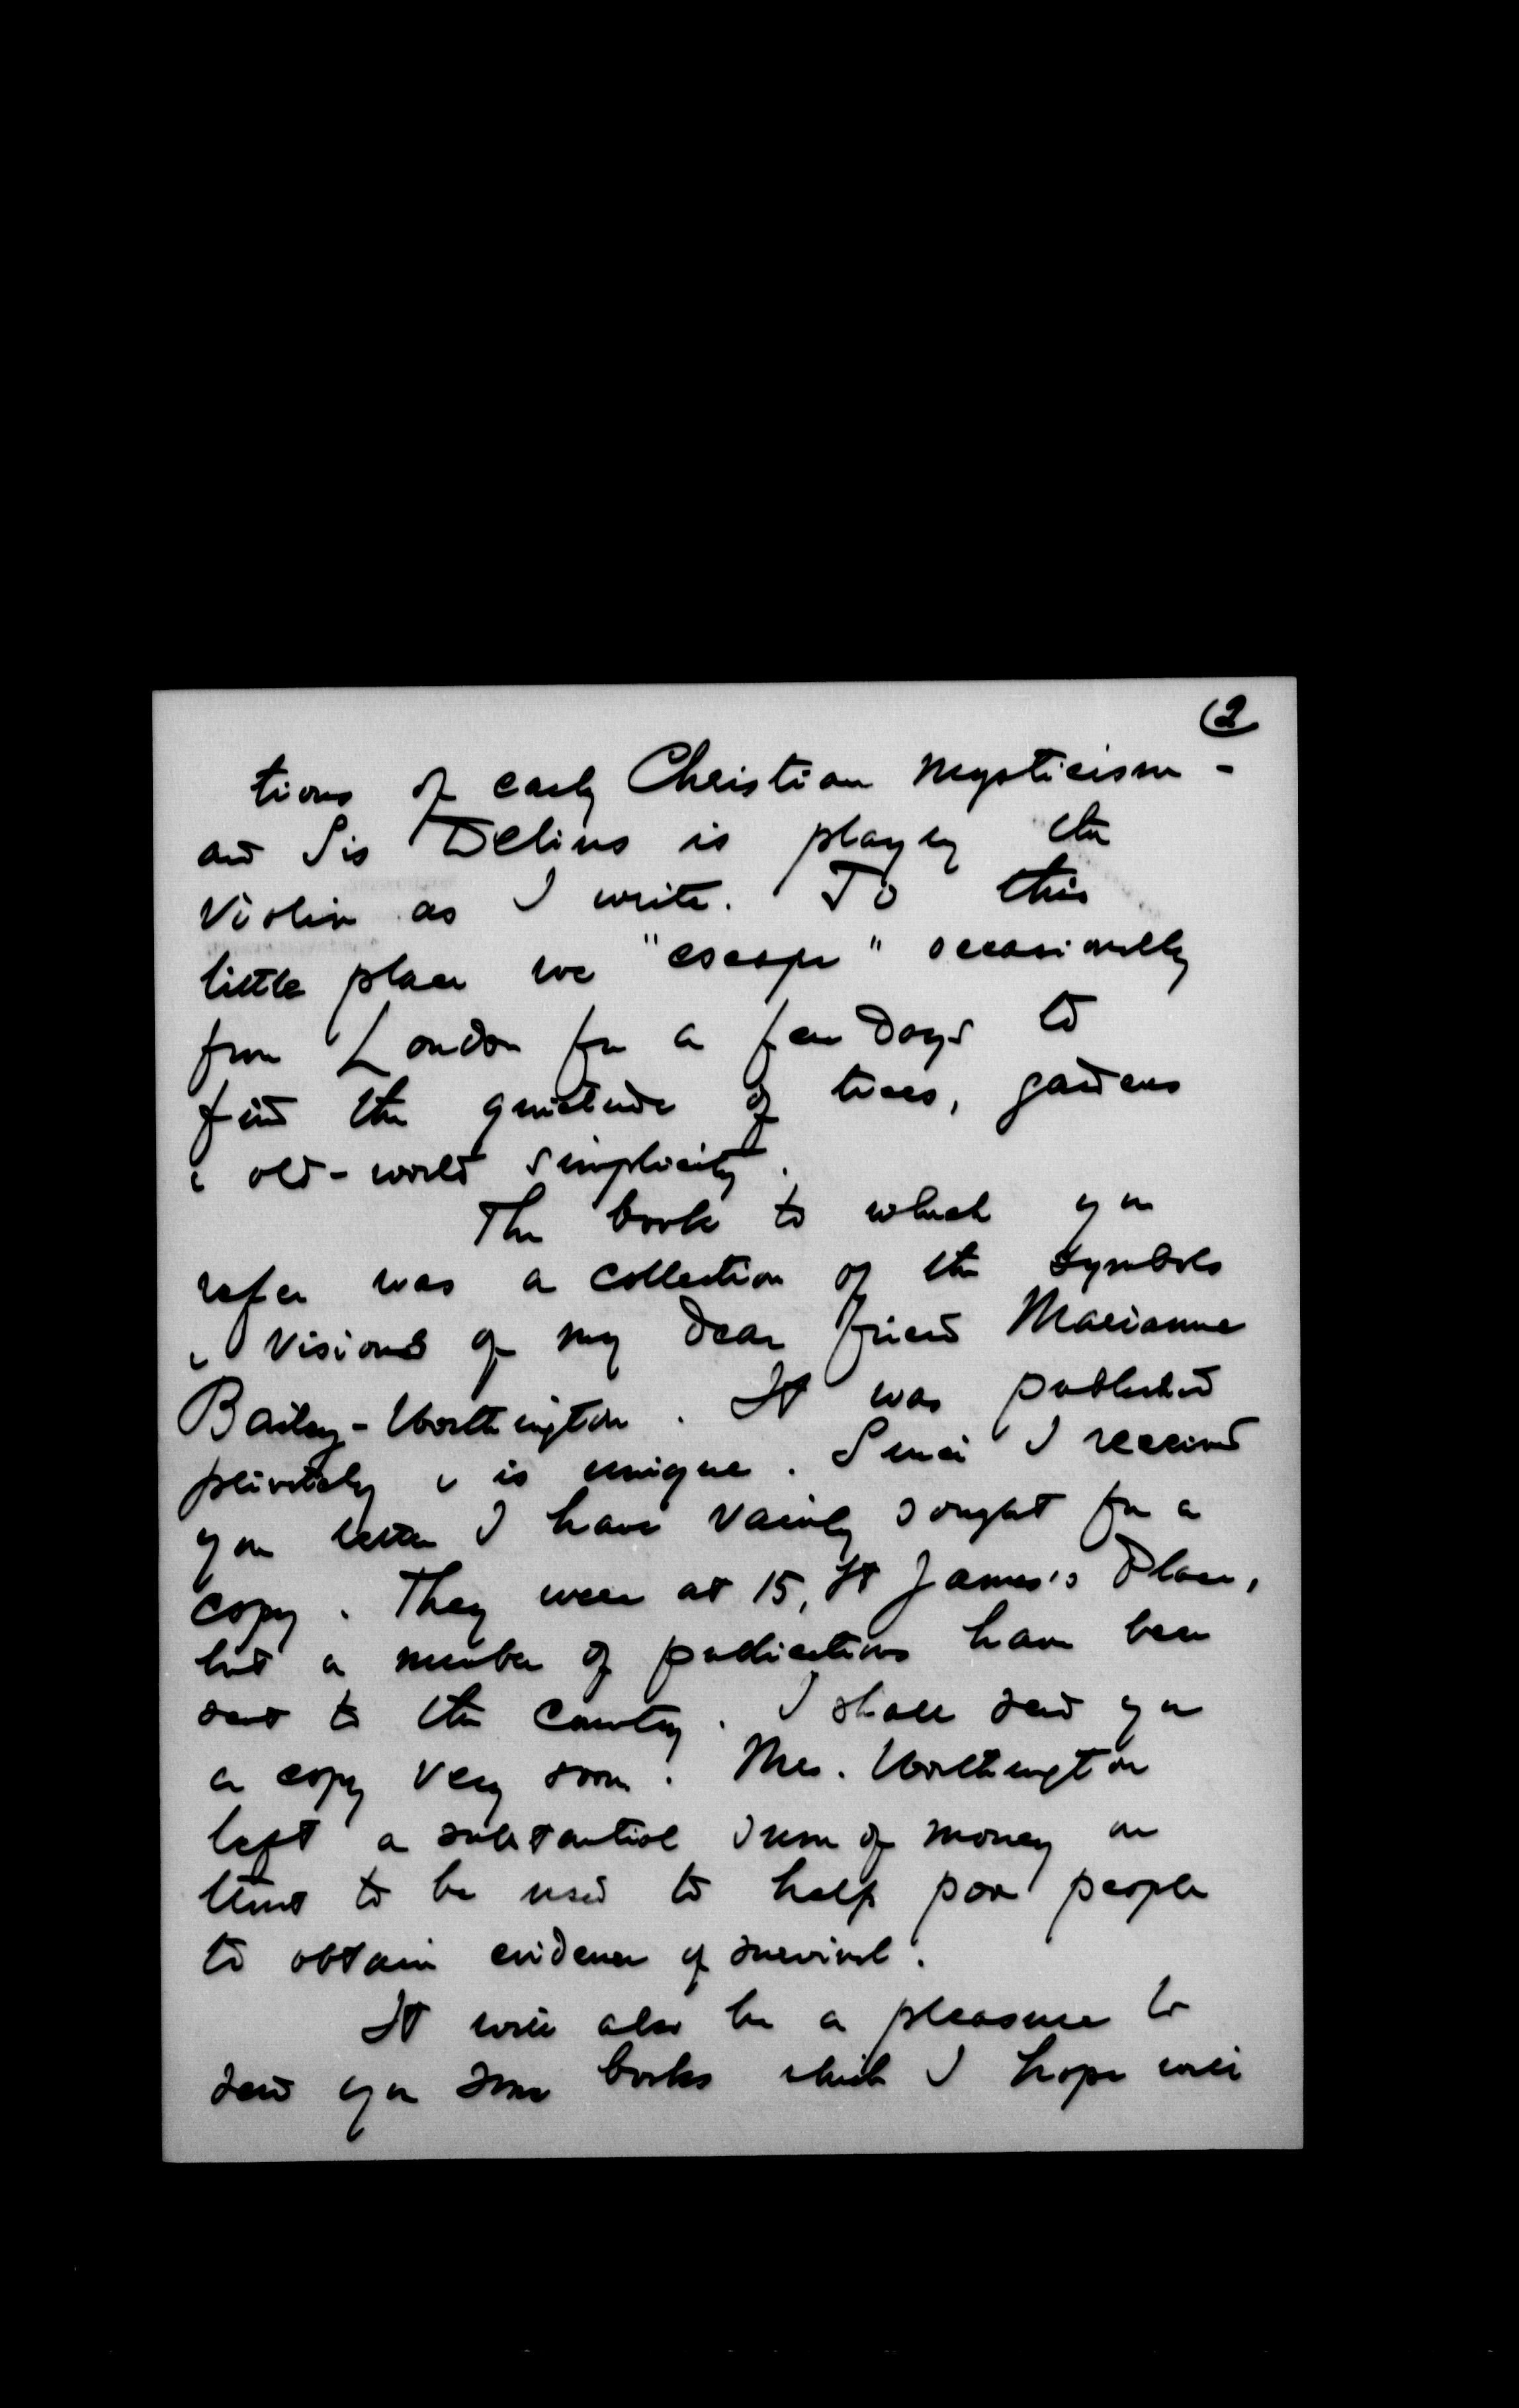 (2
tions of early Christian Mysticism -
and Sis Delius is playing the
Violin as I write. To this
little place we "escape" occasionally
from London for a few days to
find the quietude of trees, gardens
& old-world simplicity.
The book to which you
refer was a collection of the symbols
& visions of my dear friend Marianne
Bailey-Worthington. It was published
privately & is unique. Since I received
your letter I have vainly sought for a
copy. They were at 15, St James's Place,
but a number of publications have been
sent to the country. I shall send you
a copy very soon. Mrs. Worthington
left a substantial sum of money on
trust to be used to help poor people
to obtain evidence of survival.
It will also be a pleasure to
send you some books which I hope will